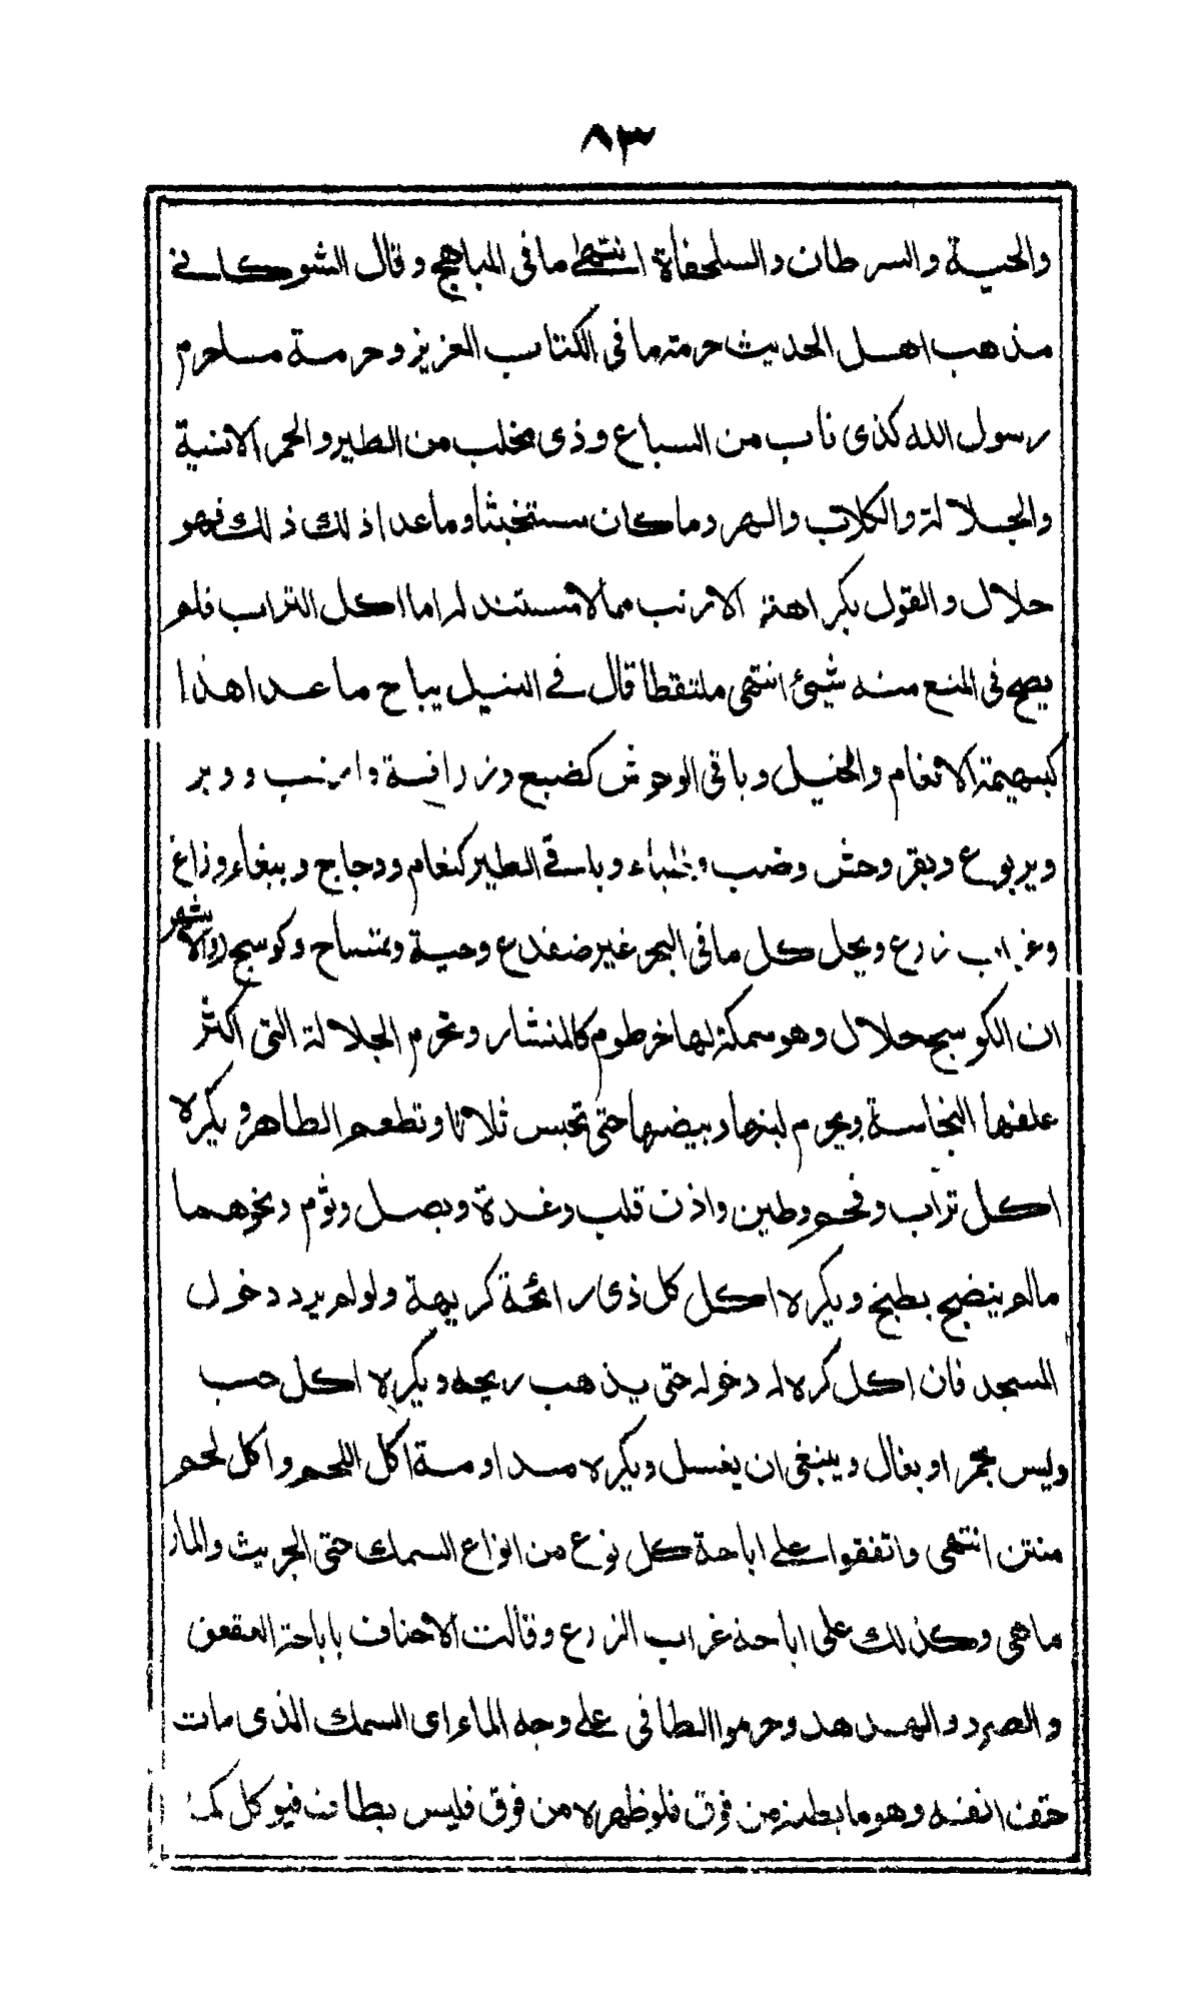 ٨٣
والحية والسرطان والسلحفأة انتهى ما فى المباهج وقال الشوكانے
مذهب اهل الحديث حرمته ما فى الكتاب العزيز وحرمة ماحرم
رسول الله كذى ناب من السباع وذى مخلب من الطير والحمر الانسية
والجلالة والكلاب والهر وما كان مستخبثا وما عدا ذلك ذلك فهو
حلال والقول بكراهة الارنب مما لا مستند له اما اكل التراب فلم
يصح فى المنع منه شيئ انتهى ملتقطا قال فے النيل يباح ما عدا هذا
كبهيمة الانعام والخيل وباقى الوحوش كضبع وزرافة وارنب ووبر
ويربوع وبقر وحش وضب وظباء وباقے الطير كنعام ودجاج وببغاء وزاغ
وغراب زرع ويحل كل ما فى البحر غير ضفدع وحية وتمساح وكوسج (والاشهر
ان الكوسج حلال وهو سمكة لها خرطوم كالمنشار وتحرم الجلالة التى اكثر
علفها النجاسة ويحرم لبنها وبيضها حتى تحبس ثلاثا وتطعم الطاهر ويكره
اكل تراب وفحم وطين واذن قلب وغدة وبصل وثوم ونحوهما
مالم ينضج بطبخ ويكره اكل كل ذى رائحة كريهة ولو لم يرد دخول
المسجد فان اكل كره له دخوله حتى يذهب ريحه ويكره اكل حب
وليس بحمر او بغال وينبغى ان يغسل ويكره مداومة اكل اللحم واكل لحم
منتن انتهى واتفقوا على اباحة كل نوع من انواع السمك حتى الجريث والمار
ماهى وكذلك على اباحة غراب الزرع وقالت الاحناف باباحة العقعق
والصرد والهدهد وحرموا الطافى على وجه الماء اى السمك الذى مات
حتف انفه وهو ما بطنه من فوق فلو ظهره من فوق فليس بطاف فيوكل كما